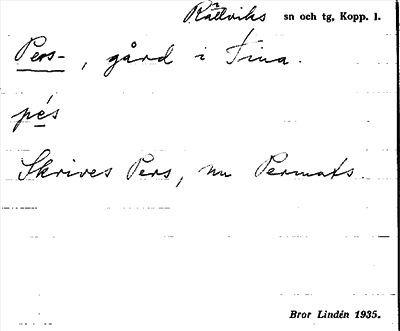 Rättviks sn och tg, Kopp. l.
Pers-, gård i Fina.
pe's
Skrives Pers, nu Permats.
Bror Lindén 1935.